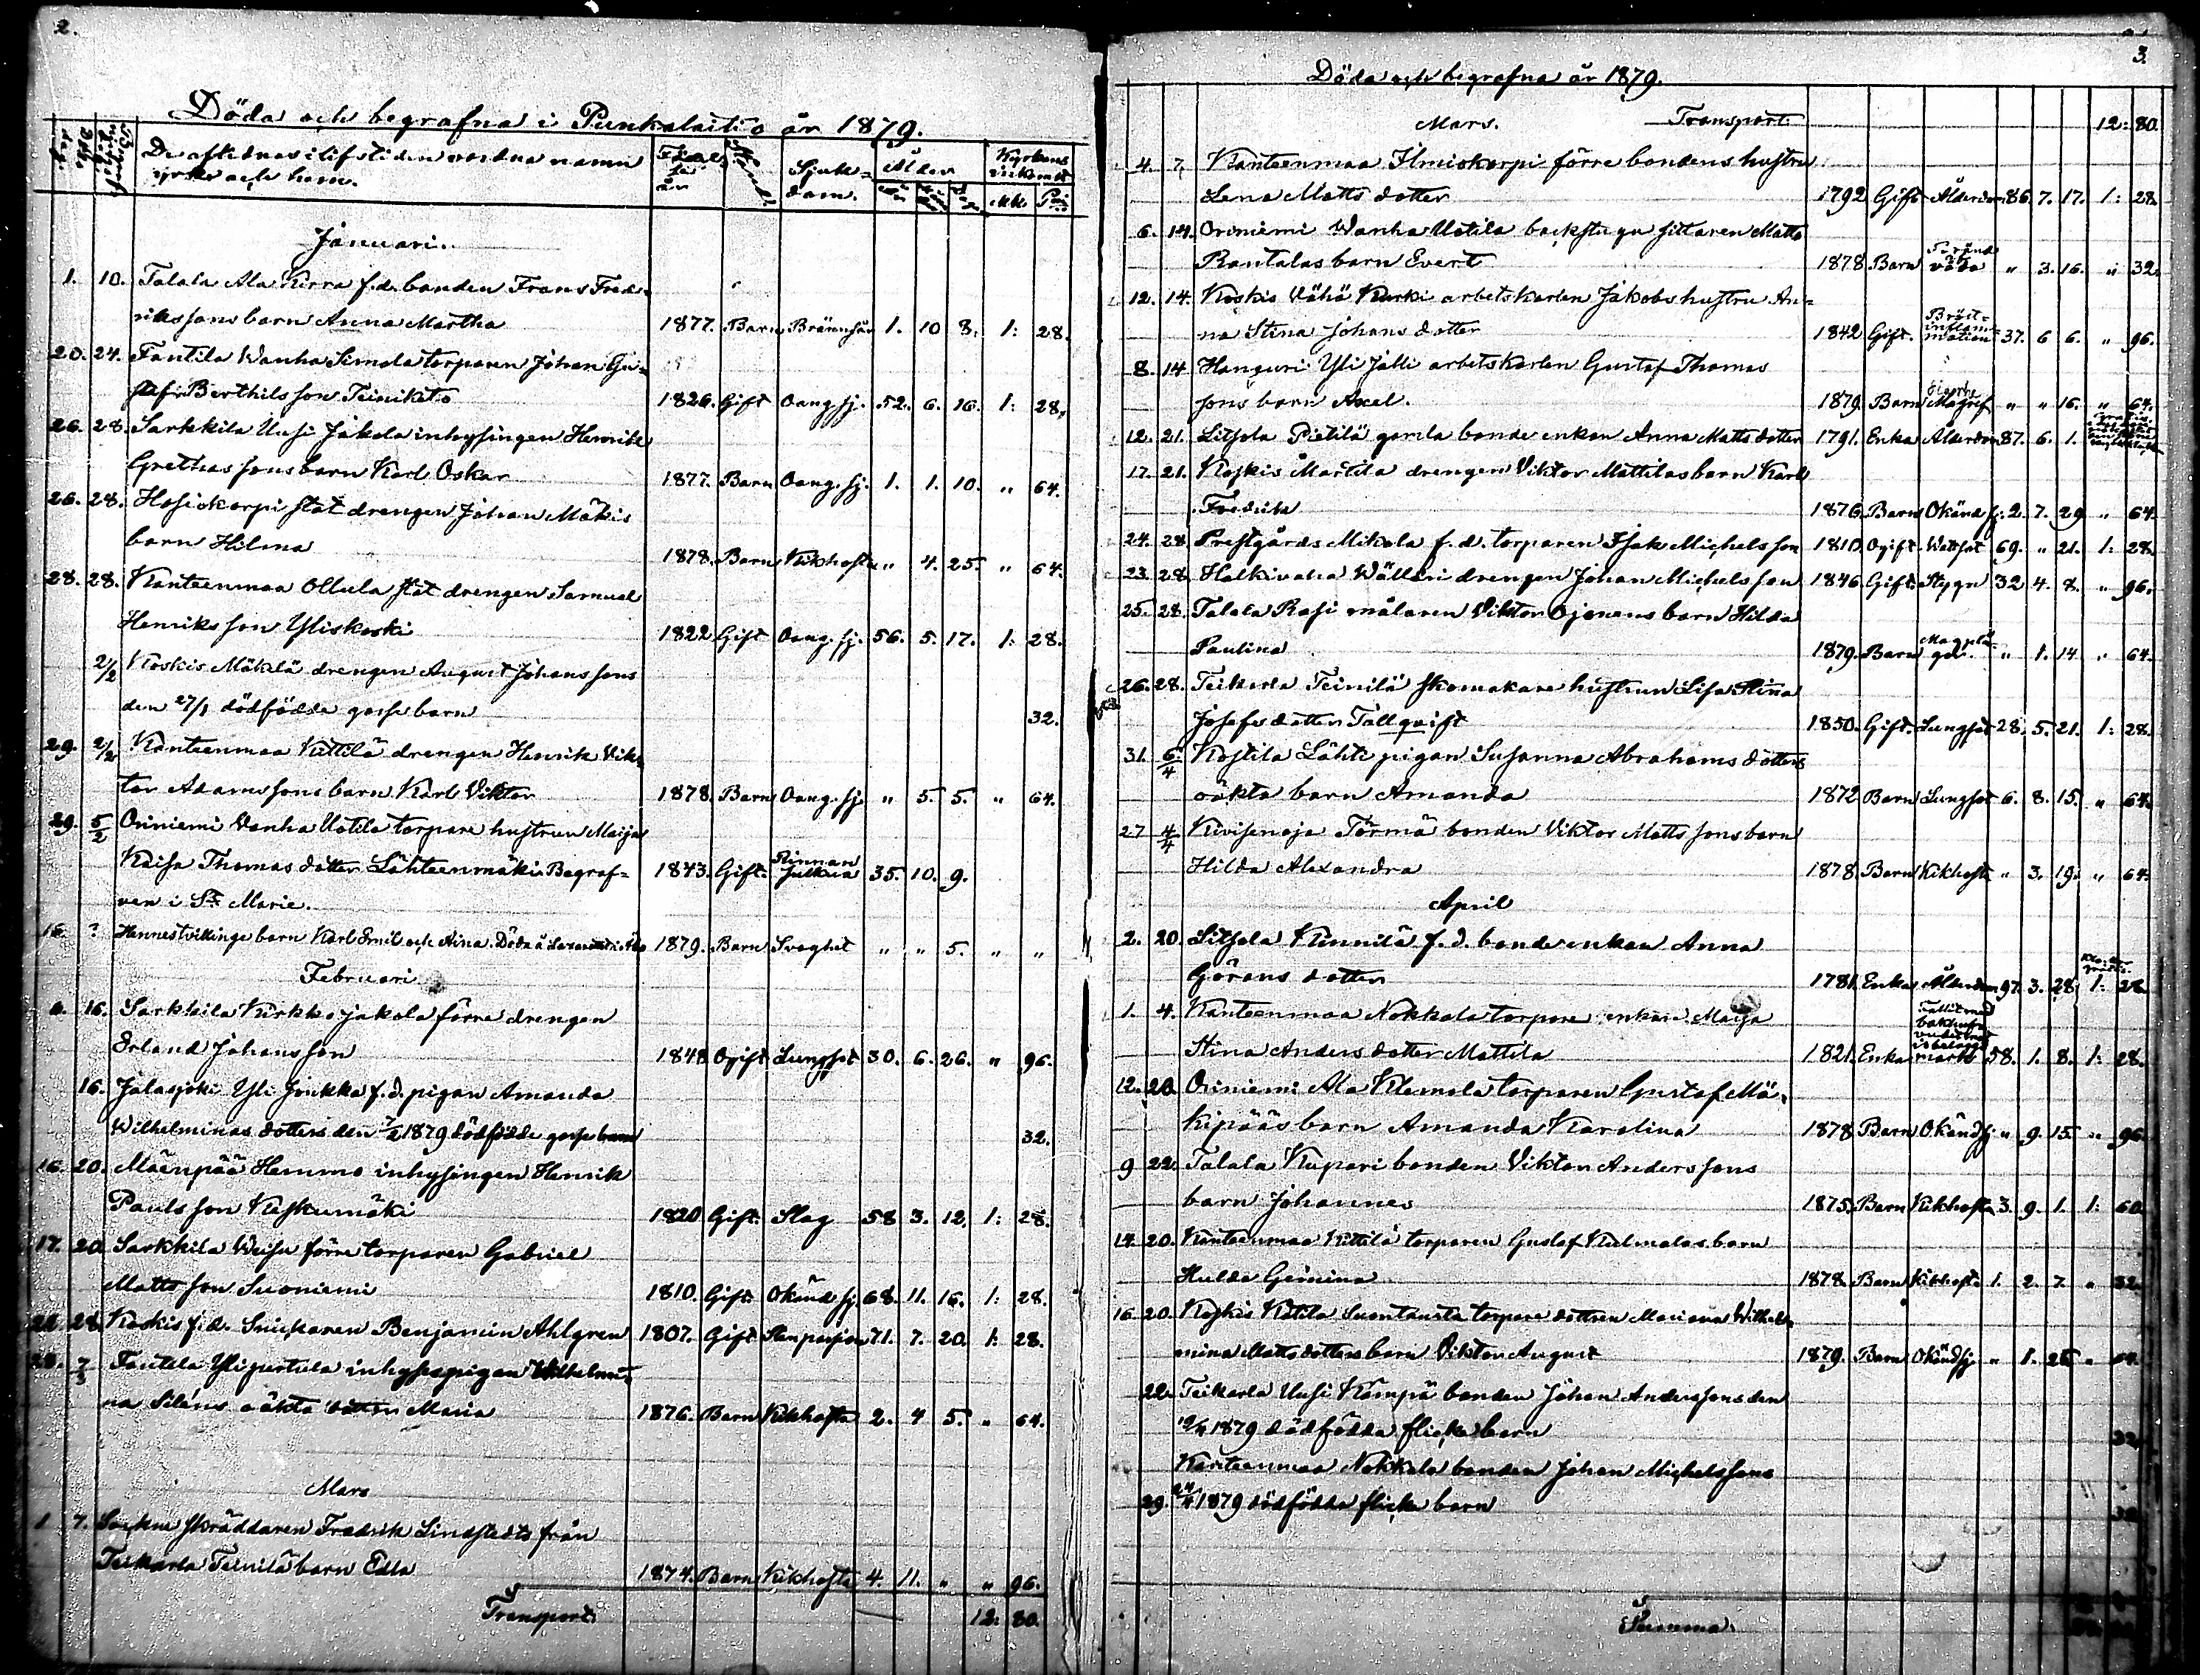 2.
Döda och begrafna i Punkalaitio år 1879.
De aflednas i lifstiden vordna namn
yrke och hem.
Sjuk-
dom.
Ålder
Kyrkans
Mk Pni
Januari.
1. 10. Talala Ala Kirra f.d. bonden Frans Fred-
rikssons barn Anna Martha 1877. Barn Brännsår 1. 10 8. 1: 28.
20. 24. Fantila Wanha Simola torparen Johan Gu-
staf Berthilsson Teinikito 1826. Gift Oang. sj. 52. 6. 16. 1: 28.
26. 28. Sarkkila Uusi Jakola inhysingen Henrik
Grethassons barn Karl Oskar 1877. Barn Oang. sj. 1. 1. 10. " 64.
26. 28. Hosiokorpi stat drengen Johan Mäkis
barn Hilma 1878. Barn Kikhosta " 4. 25. " 64.
28. 28. Kanteenmaa Ollula stat drengen Samuel
Henriksson Yliskoski 1822 Gift Oang. sj. 56. 5. 17. 1: 28.
2/2 Koskis Mäkelä drengen August Johanssons
den 27/1 dödfödda gosse barn 32.
29. 2/2 Kanteenmaa Kittilä drengen Henrik Vik-
tor Adamssons barn Karl Viktor 1878. Barn Oang. sj. " 5. 5. " 64.
29. 5/2 Oriniemi Vanha Uotila torpare hustrun Maija
Kaisa Thomas dotter Lähteenmäki. Begraf- 1843. Gift 35. 10. 9.
ven i St. Marie.
16 ? Hennes tvillinge barn Karl Emil och Aina. Döda å 1879. Barn Svaghet " " 5. " "
Februari
6. 16. Sarkkila Kirkkojakola förre drengen
Erland Johansson 1848 Ogift Lungsot 30. 6. 26. " 96.
16. Jalasjoki Yli Joukka f.d. pigan Amanda
Wilhelminas dotters den 7/2 1879 dödfödde gosse barn 32.
16. 20. Mäenpää Hemmo inhysingen Henrik
Paulsson Keskumäki 1820 Gift Slag 58 3. 12. 1: 28.
17. 20 Sarkkila förre torparen Gabriel
Mattsson Suoniemi 1810. Gift Okänd sj 68. 11. 16. 1: 28.
22. 28 Koskis f.d. Snickaren Benjamin Ahlgren 1807. Gift 71. 7. 20. 1: 28.
7/3 Fantila Yligurtula inhysespigan Wilhelmi-
na Siléns oäkta barn Maria 1876. Barn Kikhosta 2. 4 5. " 64.
Mars
1 7. Socknе skräddaren Fredrik Lindstedts från
Teikarla Teinilä barn Edla 1874. Barn Kikhosta 4. 11. " " 96.
Transport. 12: 80.
3.
Döda och begrafna år 1879.
Mars. Transport 12: 80.
4. 7. Kanteenmaa Ilmiskorpi förre bondens hustru
Lena Matts dotter 1792 Gift Ålderdom 86. 7. 17. 1: 28.
6. 14. Oriniemi Wanha Uotila backstugu sittaren Matts
Rantalas barn Evert 1878 Barn " 3. 16. " 32.
12. 14. Koskis Vähä Kurki arbetskarlen Jakobs hustru An-
na Stina Johans dotter 1842 Gift. Bröst-inflammation 37. 6 6. " 96.
8. 14 Hanguri Yli Jälli arbetskarlen Gustaf Thomas
sons barn Axel. 1879. Barn " " 16. " 64.
12. 21. Litsola Pietilä gamla bonde enkan Anna Matts dotter 1791. Enka Ålderdom 87. 6. 1.
17. 21. Koskis Martila drengen Viktor Mattilas barn Karl
Fredrik 1876. Barn Okänd sj. 2. 7. 29 " 64.
24. 28. Prestgårds Mikola f.d. torparen Isak Michelsson 1810. Ogift Wattsot 69. " 21. 1: 28.
23. 28. Halkivaha Wälläri drengen Johan Michelsson 1846 Gift Stygn 32 4. 8. " 96.
25. 28. Talala Rasi målaren Viktor Ojanens barn Hilda
Paulina 1879. Barn " 1. 14 " 64.
26. 28. Teikarla Teinilä skomakare hustrun Lisa Stina
Josefs dotter Tällqvist 1850. Gift. Lungsot 28. 5. 21. 1: 28.
31. 6/4 Kostila Lähti pigan Susanna Abrahams dotters
oäkta barn Amanda 1872 Barn Lungsot 6. 8. 15. " 64.
27 4/4 Kivisenoja Törmä bonden Viktor Mattssons barn
Hilda Alexandra 1878 Barn Kikhosta " 3. 19. " 64.
April
2. 20. Litsola Kinnilä f.d. bonde enkan Anna
Görans dotter 1781. Enka Ålderdom 97. 3. 28. 1: 28.
1. 4. Kanteenmaa Nokkala torpare enkan Maija
Stina Anders dotter Mattila 1821. Enka 58. 1. 8. 1: 28.
12. 20. Oriniemi Ala Klemola torparen Gustaf Mä-
kipääs barn Amanda Karolina 1878 Barn Okänd sj " 9. 15. " 96.
9 22. Talala Kupari bonden Viktor Anderssons
barn Johannes 1875. Barn Kikhosta 3. 9. 1. 1: 60
14 20. Kanteenmaa Kittilä torparen Gustaf Kulmalas barn
Hulda Gemina 1878 Barn Kikhosta 1. 2. 7. " 32.
16. 20. Koskis Kitila Suontausta torpare dottren Mariana Wilhel-
mina Matts dotters barn Viktor August 1879. Barn Okänd sj " 1. 25 " 64.
22. Teikarla Uusi Kämpä bonden Johan Anderssons den
19/4 1879 dödfödda flicke barn 32
Kanteenmaa Nokkala bonden Johan Michelssons
29. 24/4 1879 dödfödda flicke barn 32
Summa.